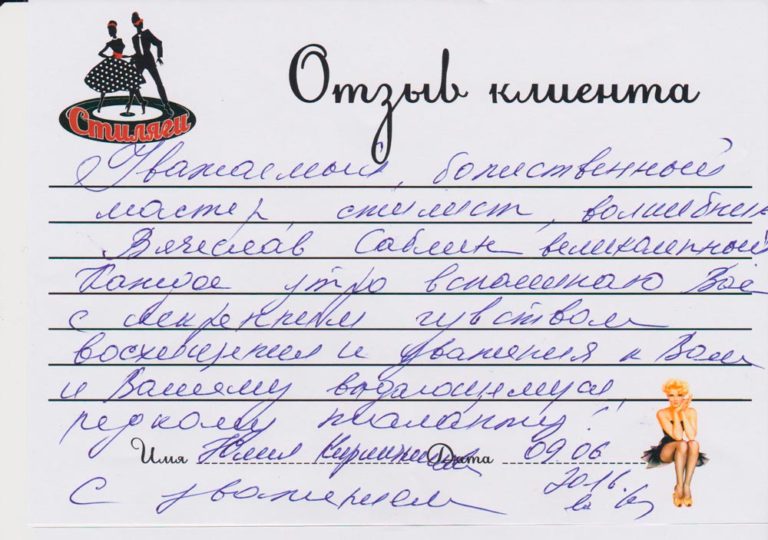 Стиляги
Отзыв клиента
Уважаемый, божественный
мастер, стилист, волшебник
Вячеслав Саблин великолепный
Каждое утро вспоминаю Вас
с искренним чувством
восхищения и уважения к Вам
и Вашему выдающемуся,
редкому таланту!
Имя Юлия Дата 09.06
2016.
С уважением